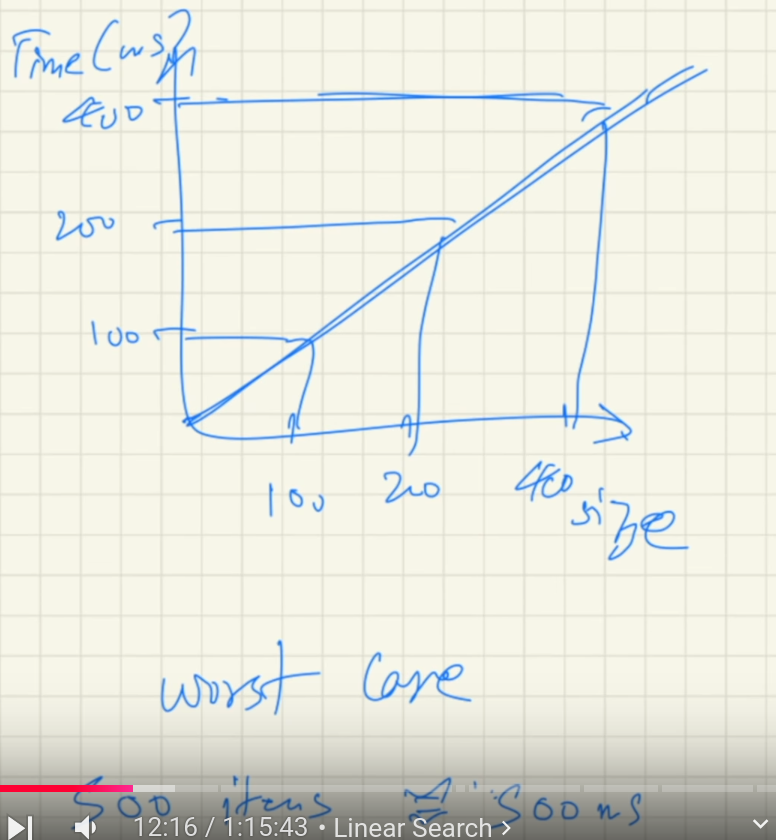 Time (ms)
400
200
100
100 200 400
size
worst case
500 items ≈ 500 ms
12:16 / 1:15:43 • Linear Search >